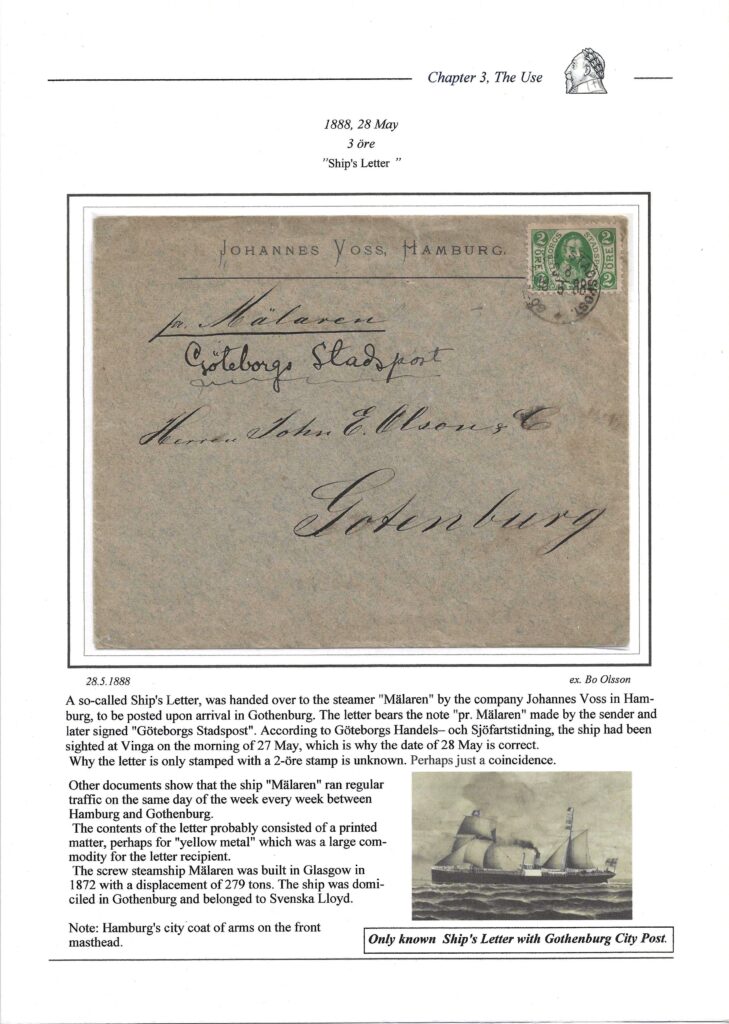 Chapter 3, The Use
1888, 28 May
3 öre
"Ship's Letter "
JOHANNES VOSS, HAMBURG.
2 2
ÖRE ÖRE
pr. Mälaren
Göteborgs Stadspost
Herren John E. Olson & C
Gotenburg
28.5.1888
ex. Bo Olsson
A so-called Ship's Letter, was handed over to the steamer "Mälaren" by the company Johannes Voss in Ham-
burg, to be posted upon arrival in Gothenburg. The letter bears the note "pr. Mälaren" made by the sender and
later signed "Göteborgs Stadspost". According to Göteborgs Handels– och Sjöfartstidning, the ship had been
sighted at Vinga on the morning of 27 May, which is why the date of 28 May is correct.
Why the letter is only stamped with a 2-öre stamp is unknown. Perhaps just a coincidence.
Other documents show that the ship "Mälaren" ran regular
traffic on the same day of the week every week between
Hamburg and Gothenburg.
The contents of the letter probably consisted of a printed
matter, perhaps for "yellow metal" which was a large com-
modity for the letter recipient.
The screw steamship Mälaren was built in Glasgow in
1872 with a displacement of 279 tons. The ship was domi-
ciled in Gothenburg and belonged to Svenska Lloyd.
Note: Hamburg's city coat of arms on the front
masthead.
Only known Ship's Letter with Gothenburg City Post.